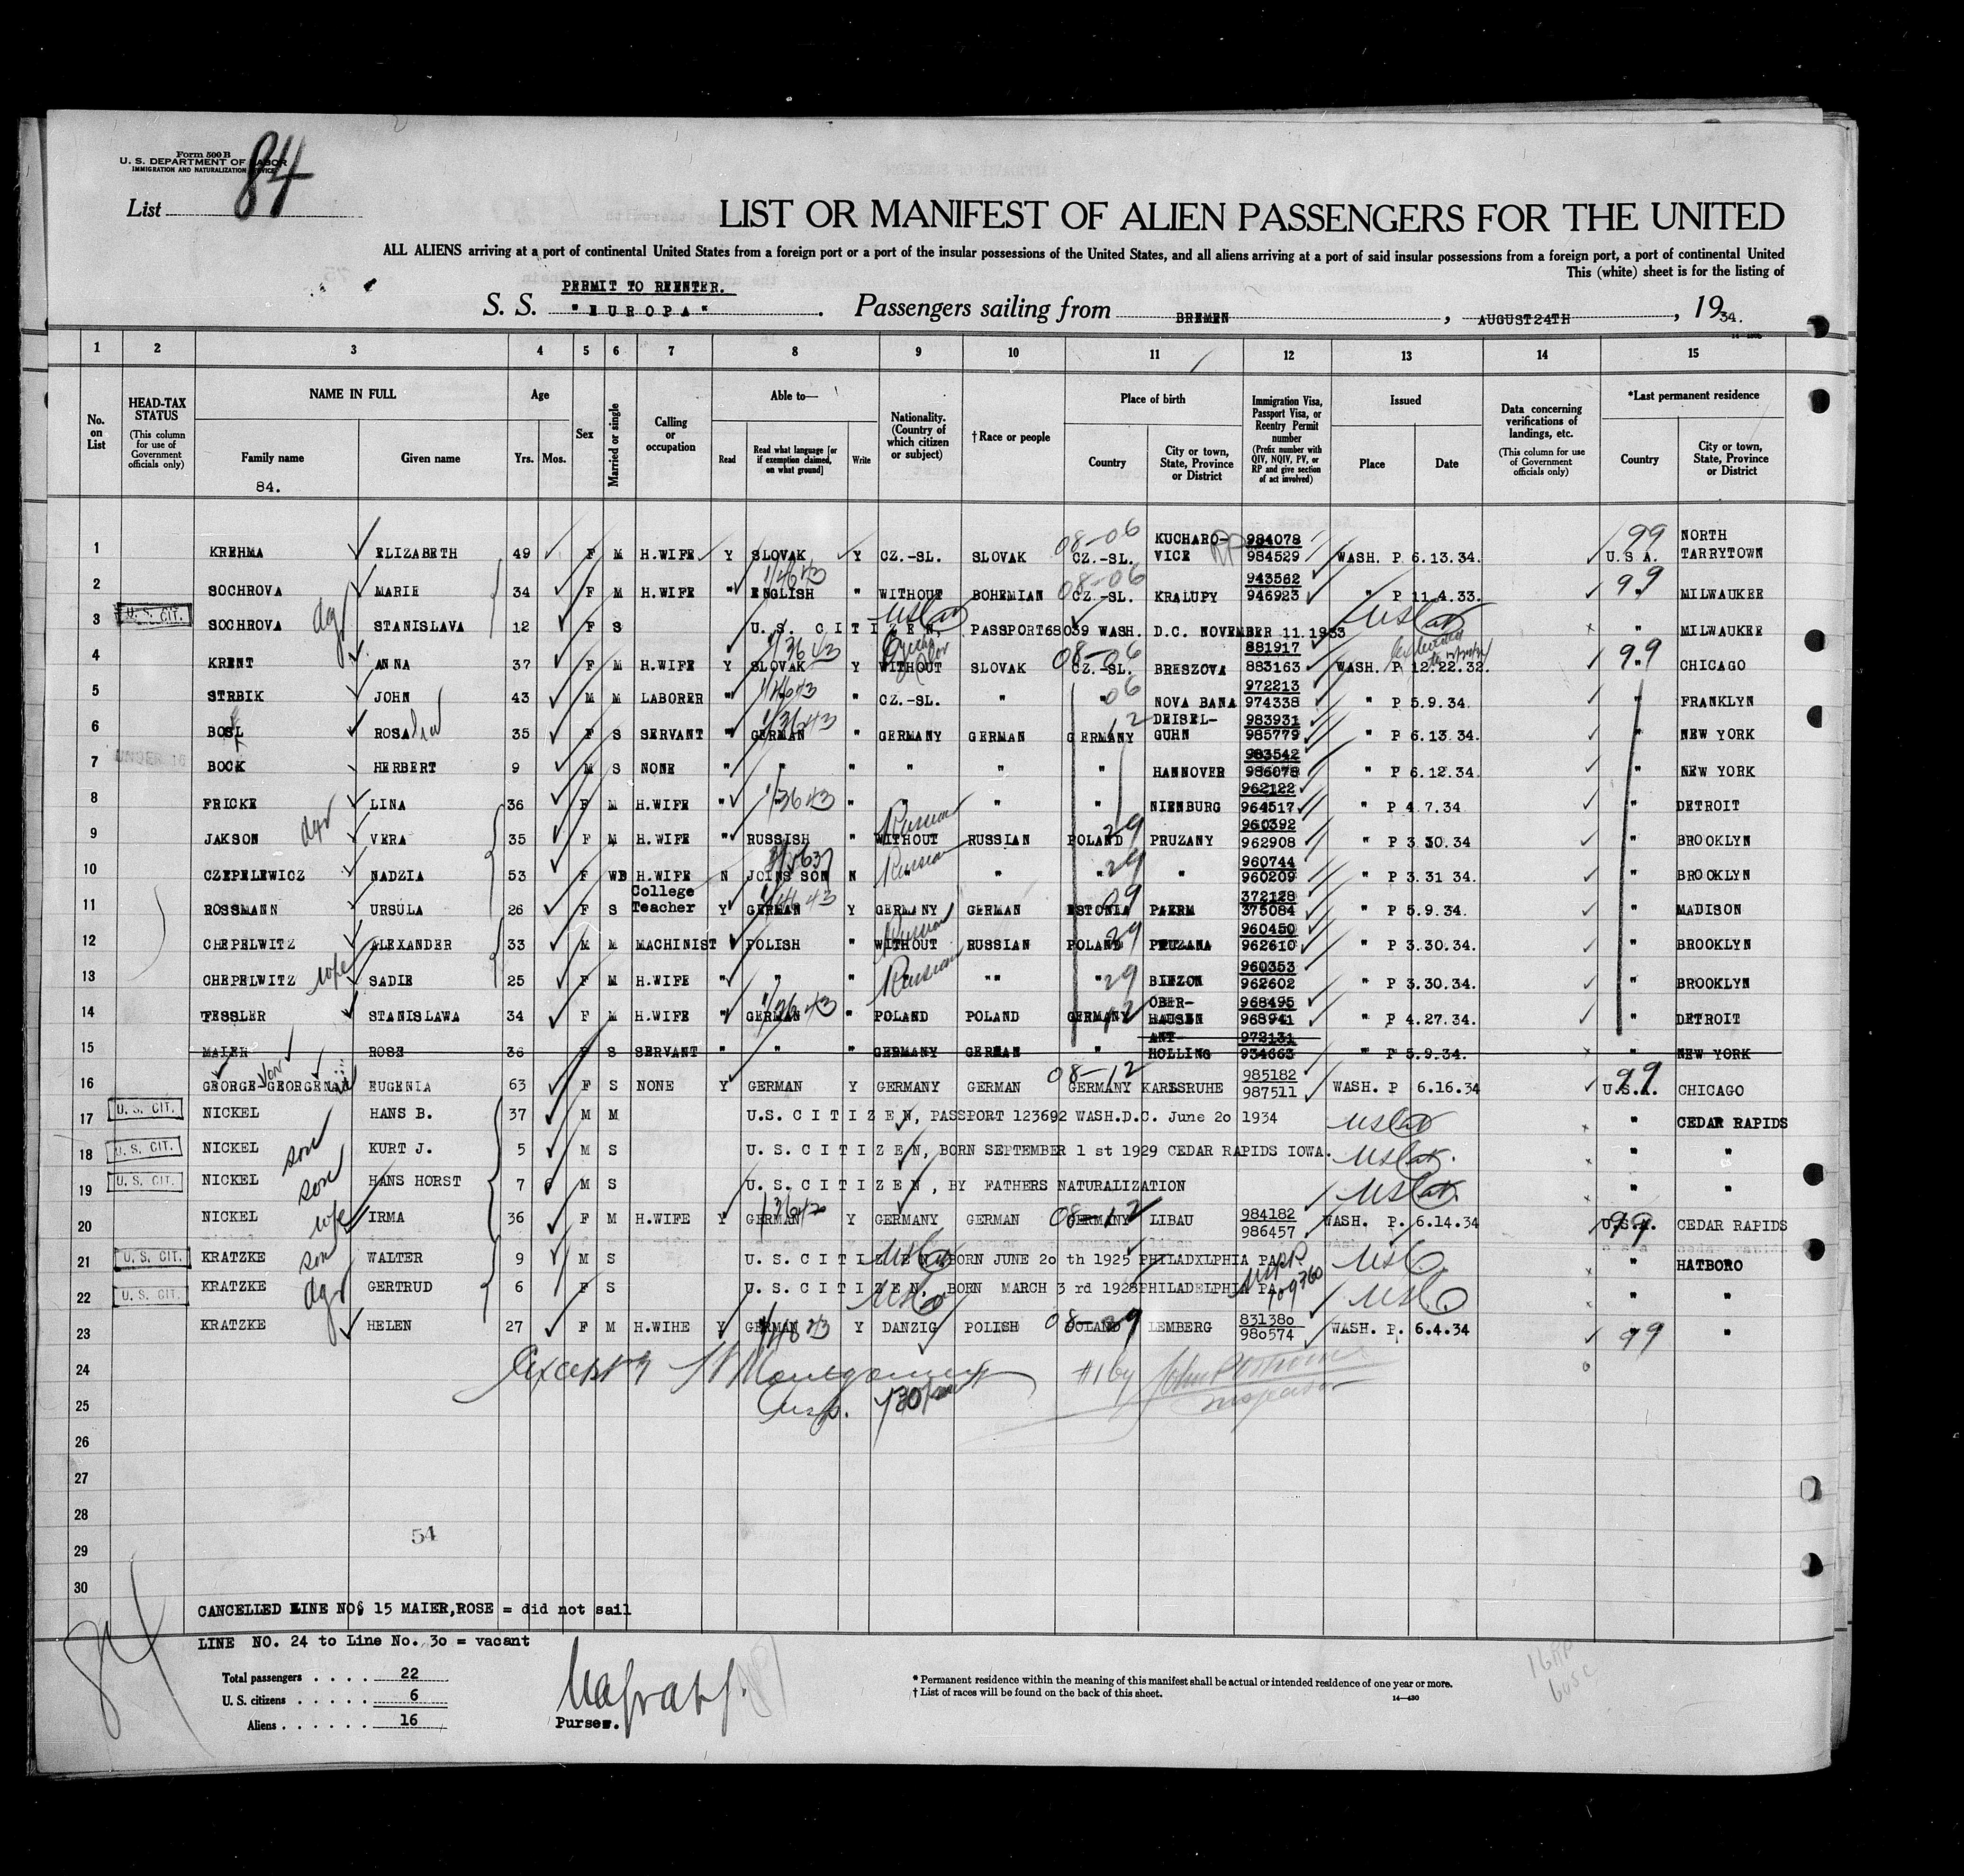 Form 500 B
U. S. DEPARTMENT OF LABOR
IMMIGRATION AND NATURALIZATION SERVICE
84
List
LIST OR MANIFEST OF ALIEN PASSENGERS FOR THE UNITED
ALL ALIENS arriving at a port of continental United States from a foreign port or a port of the insular possessions of the United States, and all aliens arriving at a port of said insular possessions from a foreign port, a port of continental United
This (white) sheet is for the listing of
PERMIT TO REENTER.
S. S. "EUROPA". Passengers sailing from BREMEN, AUGUST 24TH, 1934.
1 2 3 4 5 6 7 8 9 10 11 12 13 14 15
No. on List
HEAD-TAX STATUS (This column for use of Government officials only)
NAME IN FULL
Family name
Given name
84.
Age
Yrs. Mos.
Sex
Married or single
Calling or occupation
Able to—
Read
Read what language [or if exemption claimed, on what ground]
Write
Nationality. (Country of which citizen or subject)
†Race or people
Place of birth
Country
City or town, State, Province or District
Immigration Visa, Passport Visa, or Reentry Permit number (Prefix number with QIV, NQIV, PV, or RP and give section of act involved)
Issued
Place
Date
Data concerning verifications of landings, etc. (This column for use of Government officials only)
*Last permanent residence
Country
City or town, State, Province or District
1 KREHMA ELIZABETH 49 F M H.WIFE Y SLOVAK Y CZ.-SL. SLOVAK 08-06 CZ.-SL. KUCHARO-VICE RP 984078 984529 WASH. P 6.13.34. 99 U.S A. NORTH TARRYTOWN
2 SOCHROVA MARIE 34 F M H.WIFE " ENGLISH " WITHOUT BOHEMIAN 08-06 CZ.-SL. KRALUPY 943562 946923 " P 11.4.33. 99 " MILWAUKEE
3 U. S. CIT. SOCHROVA dgr STANISLAVA 12 F S U.S. CITIZEN, PASSPORT68039 WASH. D.C. NOVEMBER 11.1933 " MILWAUKEE
4 KRENT ANNA 37 F M H.WIFE Y SLOVAK Y WITHOUT SLOVAK 08-06 CZ.-SL. BRESZOVA 881917 883163 WASH. P 12.22.32. 99 " CHICAGO
5 STRBIK JOHN 43 M M LABORER " " " CZ.-SL. " " 06 NOVA BANA 972213 974338 " P 5.9.34. " FRANKLYN
6 BOSL ROSA 35 F S SERVANT " GERMAN " GERMANY GERMAN GERMANY 12 DEISEL-GUHN 983931 985779 " P 6.13.34. " NEW YORK
7 UNDER 16 BOCK HERBERT 9 M S NONE " " " " " " HANNOVER 983542 986078 " P 6.12.34. " NEW YORK
8 FRICKE LINA 36 F M H.WIFE " " " " " " NIENBURG 962122 964517 " P 4.7.34. " DETROIT
9 JAKSON dgr VERA 35 F M H.WIFE " RUSSISH " WITHOUT Russian RUSSIAN POLAND 29 PRUZANY 960392 962908 " P 3.30.34 " BROOKLYN
10 CZEPELEWICZ NADZIA 53 F WD H.WIFE N JOINS SON N " Russian " " 29 " 960744 960209 " P 3.31 34. " BROOKLYN
11 ROSSMANN URSULA 26 F S College Teacher Y GERMAN Y GERMANY GERMAN ESTONIA 09 PAERM 372128 375084 " P 5.9.34. " MADISON
12 CHEPELWITZ ALEXANDER 33 M M MACHINIST POLISH " WITHOUT Russian RUSSIAN POLAND 29 PRUZANA 960450 962610 " P 3.30.34. " BROOKLYN
13 CHEPELWITZ wife SADIE 25 F M H.WIFE " " " " Russian "" " 29 BIEZON 960353 962602 " P 3.30.34. " BROOKLYN
14 TESSLER STANISLAWA 34 F M H.WIFE " GERMAN " POLAND POLAND GERMANY 12 OBER-HAUSEN 968495 968941 " P 4.27.34. " DETROIT
15 MAIER ROSE 36 F S SERVANT " " " GERMANY GERMAN " ANT-HOLLING 972131 934663 " P 5.9.34. " NEW YORK
16 GEORGE von GEORGENAU EUGENIA 63 F S NONE Y GERMAN Y GERMANY GERMAN 08-12 GERMANY KARLSRUHE 985182 987511 WASH. P 6.16.34 99 U.S.A. CHICAGO
17 U. S. CIT. NICKEL HANS B. 37 M M U.S. CITIZEN, PASSPORT 123692 WASH.D.C. June 2o 1934 " CEDAR RAPIDS
18 U. S. CIT. NICKEL son KURT J. 5 M S U. S. CITIZEN, BORN SEPTEMBER 1 st 1929 CEDAR RAPIDS IOWA. " "
19 U. S. CIT. NICKEL son HANS HORST 7 6 M S U. S. CITIZEN, BY FATHERS NATURALIZATION " "
20 NICKEL wife IRMA 36 F M H.WIFE Y GERMAN Y GERMANY GERMAN 08-12 GERMANY LIBAU 984182 986457 WASH. P. 6.14.34 99 U.S.A. CEDAR RAPIDS
21 U. S. CIT. KRATZKE son WALTER 9 M S U. S. CITIZEN, BORN JUNE 2o th 1925 PHILADXLPHIA PA. " HATBORO
22 U. S. CIT. KRATZKE dgr GERTRUD 6 F S U. S. CITIZEN, BORN MARCH 3 rd 1928PHILADELPHIA PA. " "
23 KRATZKE HELEN 27 F M H.WIHE Y GERMAN Y DANZIG POLISH 08-29 POLAND LEMBERG 83138o 98o574 WASH. P. 6.4.34 99 "
24 except #1 by
25 Insp. Inspector
26
27
28
54
29
30
CANCELLED LINE NOS 15 MAIER,ROSE = did not sail
LINE NO. 24 to Line No. 3o = vacant
84
Total passengers . . . . 22
U. S. citizens . . . . . 6
Aliens . . . . . . 16
Purser.
* Permanent residence within the meaning of this manifest shall be actual or intended residence of one year or more.
† List of races will be found on the back of this sheet.
14—430
16 RP
6 USC